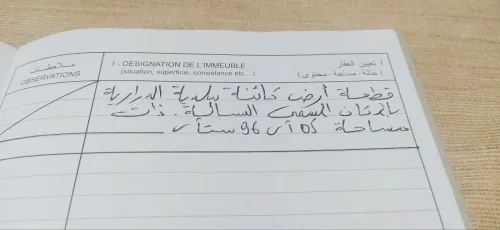 ملاحظات
OBSERVATIONS
I - DESIGNATION DE L'IMMEUBLE
(situation, superficie, consistance etc...)
I تعيين العقار
(حالة - مساحة - محتوى)
قطعة أرض كائنة ببلدية الدرارية
بالمكان المسمى السبالة. ذات
مساحة 05 آر 96 سنتآر